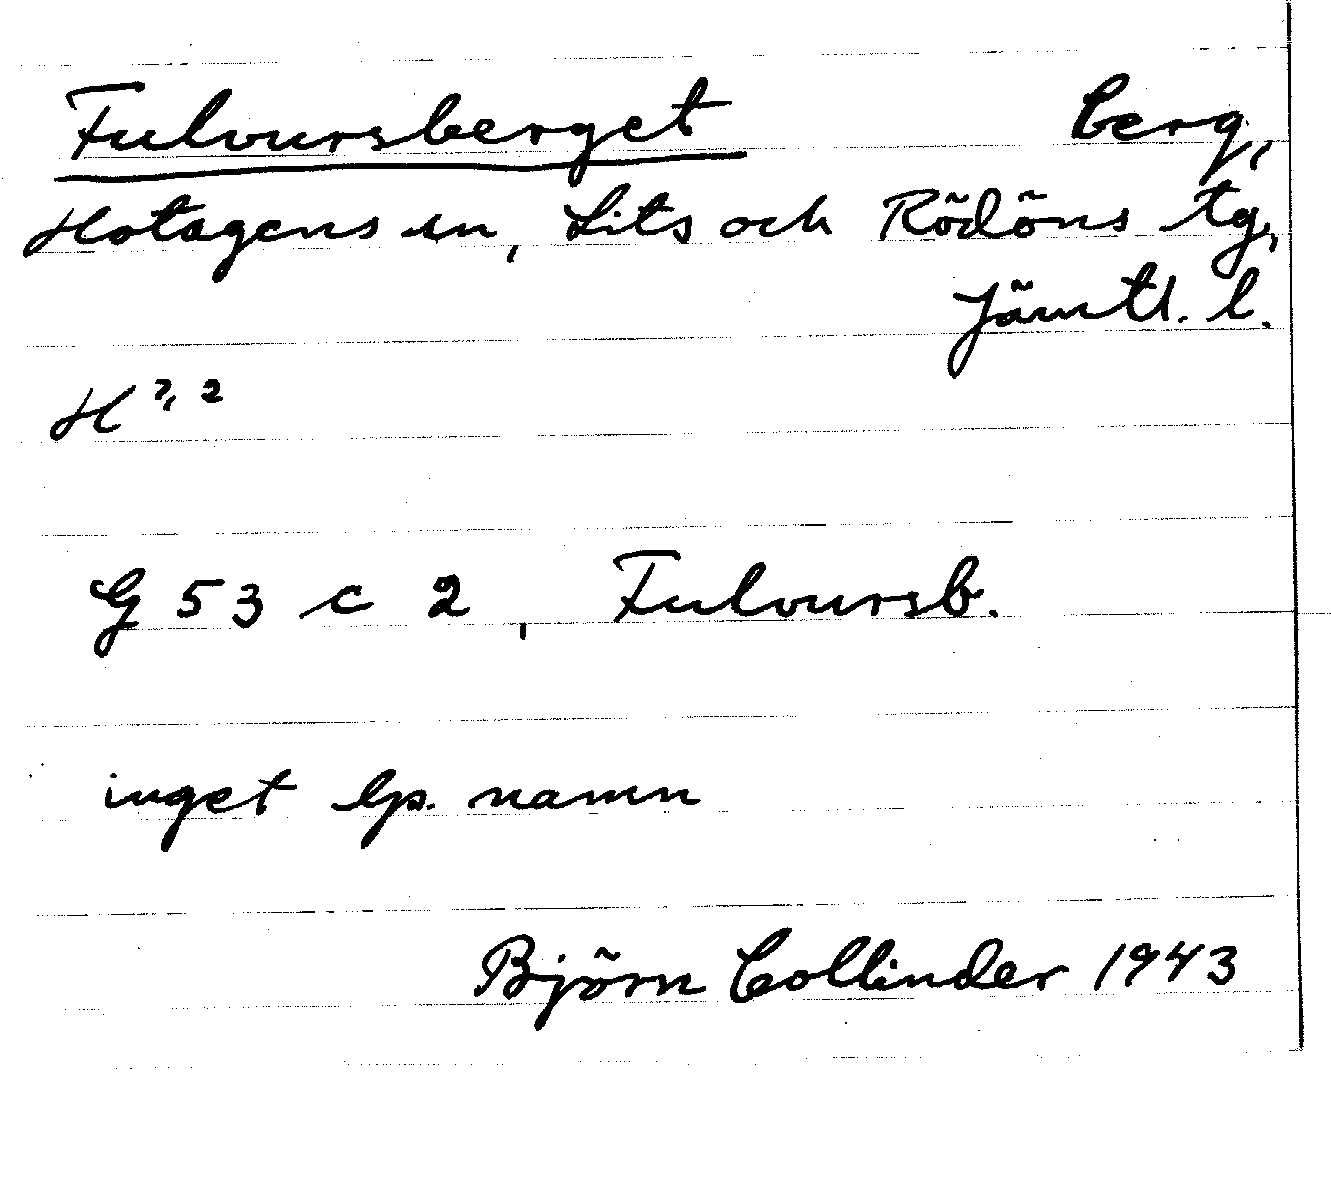 Fulvursberget berg,
Hotagens sn, Lits och Rödöns tg,
Jämtl. l.
H ?, 2
G 53 c 2, Fulvursb.
inget lp. namn
Björn Collinder 1943